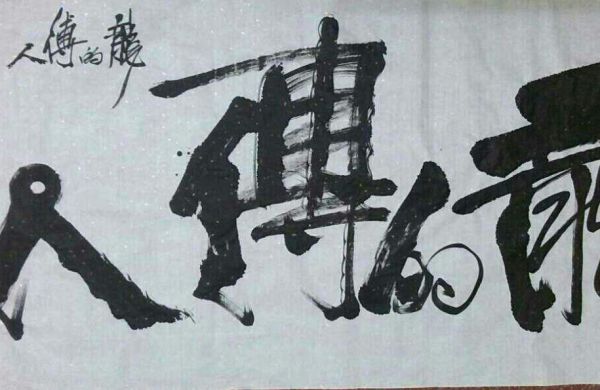 龍的傳人
龍的傳人